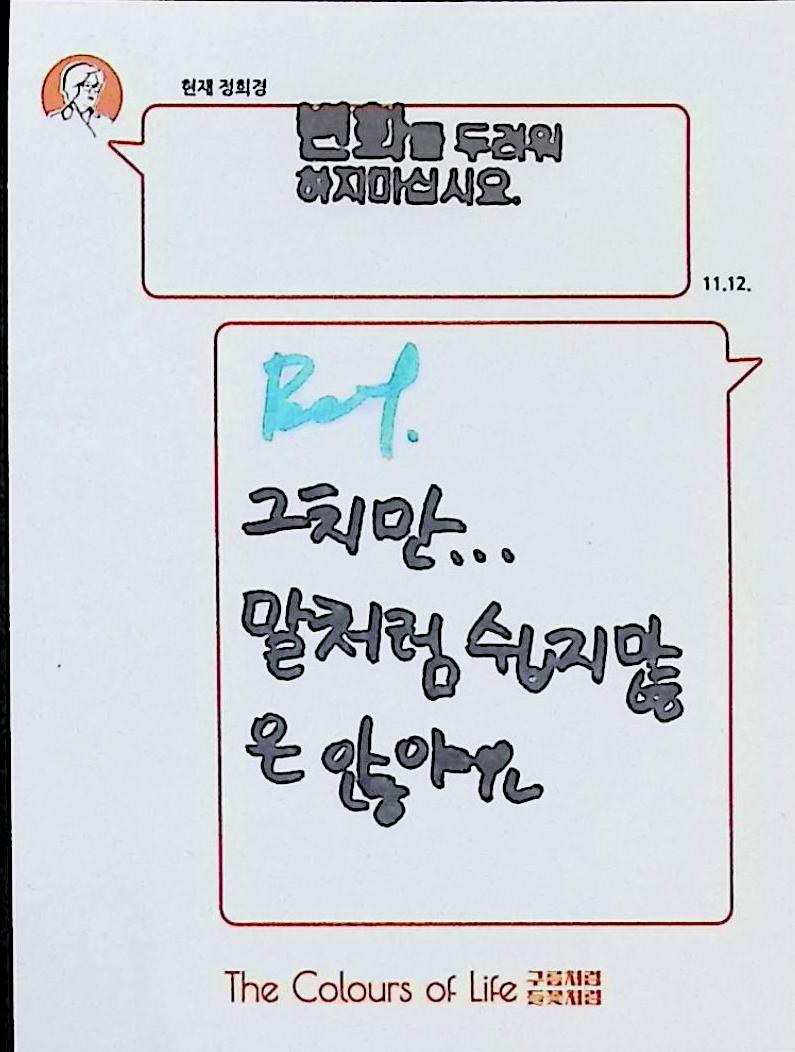 현재 정희경
변화를 두려워
하지마십시요.
11.12.
But.
그치만...
말처럼 쉽지많
은 않아요
The Colours of Life 구름처럼
들꽃처럼